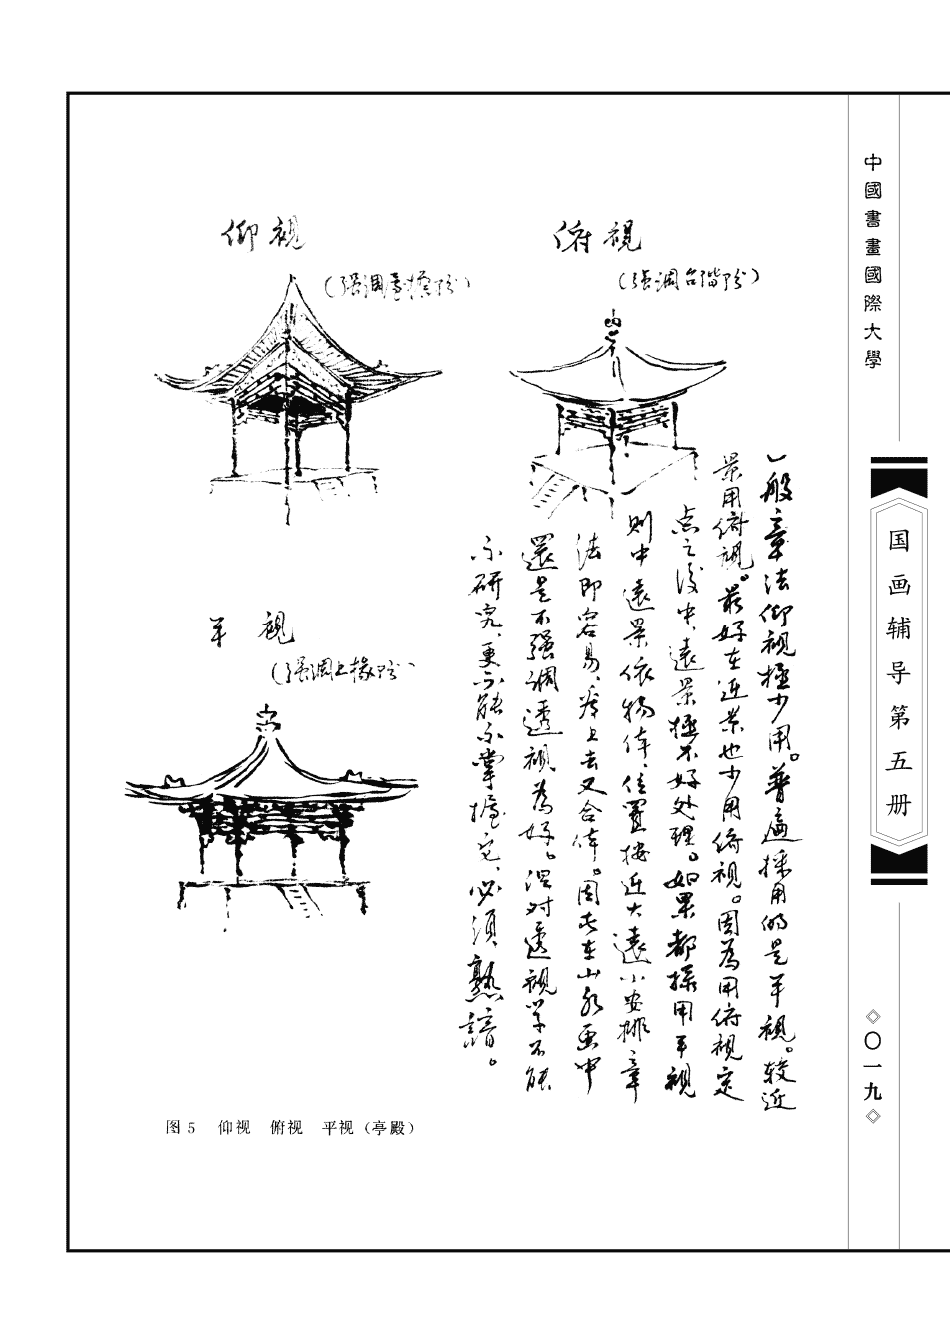 中國書畫國際大學
国画辅导第五册
〇一九
仰视
(强调屋檐部分)
俯視
(强调台階部分)
平視
(强调上檐部分)
一般章法仰视極少用。普遍採用的是平視。较近
景用俯視。最好在近景也少用俯視。因為用俯視定
点之後中、遠景極不好处理。如果都採用平視
則中遠景依物体位置按近大遠小安排章
法即容易、看上去又合体。因此在山水画中
還是不强调透視為好。但对透視学不能
不研究、更不能不掌握它、必须熟諳。
图5 仰视 俯视 平视（亭殿）